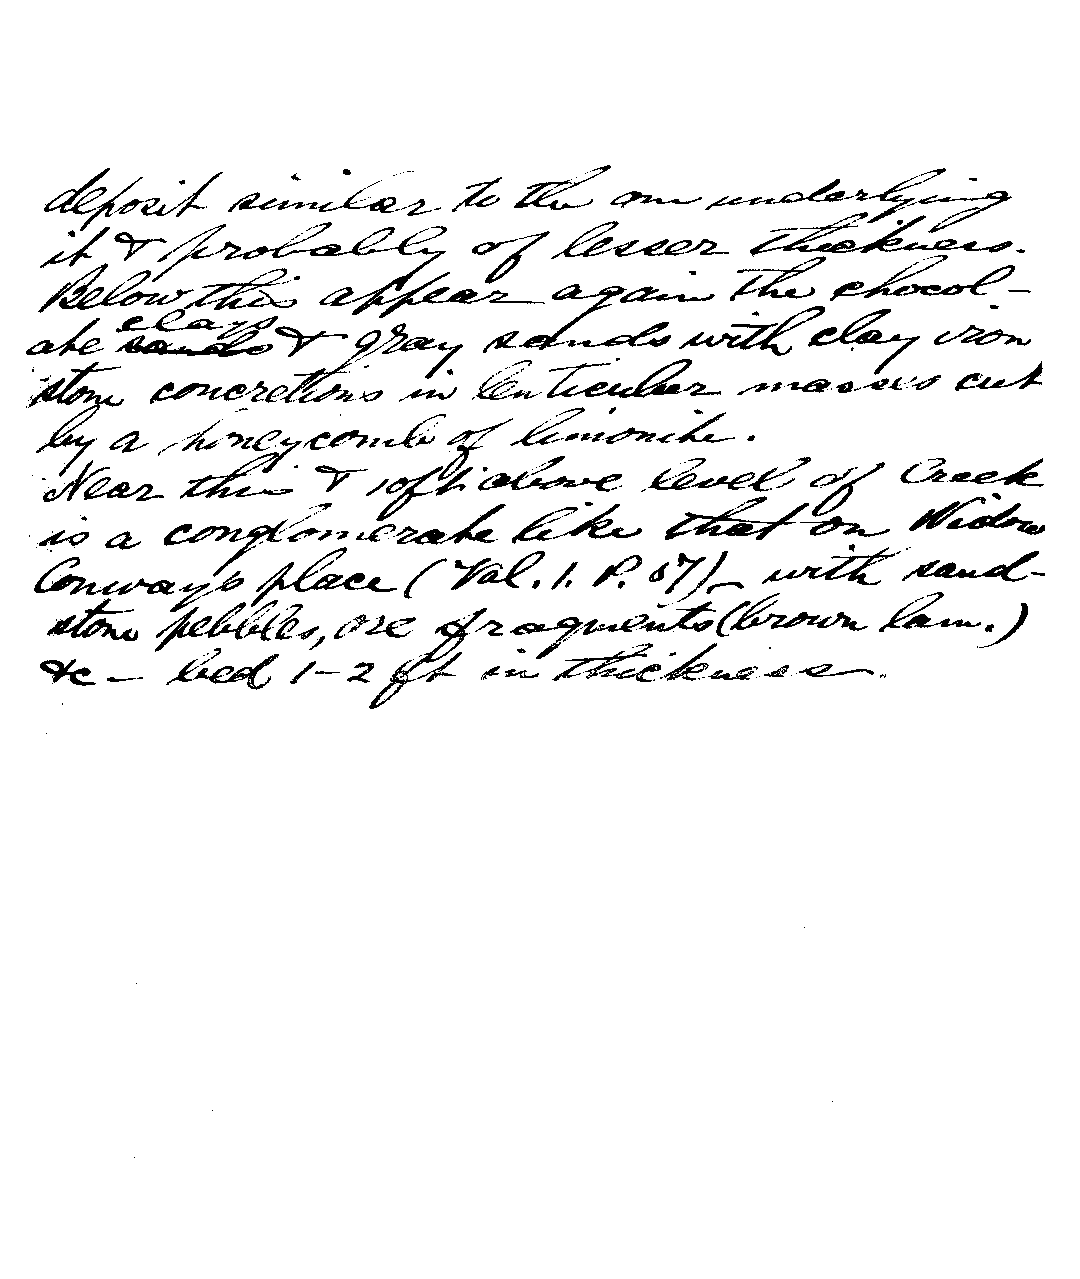 deposit similar to the one underlying
it & probably of lesser thickness.
Below this appear again the chocol-
ate clays & gray sands with clay iron
stone concretions in lenticular masses cut
by a honeycomb of limonite.
Near this & 10 ft. above level of Creek
is a conglomerate like that on Widow
Conway's place (Vol. 1. P. 57) – with sand-
stone pebbles, ore fragments (brown lam.)
&c – bed 1–2 ft in thickness.